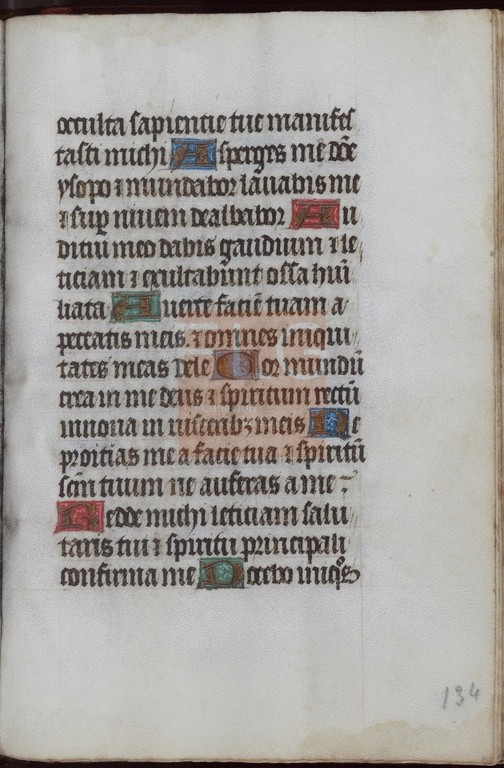 occulta sapientie tue manifes
tasti michi Asperges me dñe
ysopo ⁊ mundabor lavabis me
⁊ sup nivem dealbabor Au
ditui meo dabis gaudium ⁊ le
ticiam ⁊ exultabunt ossa hũi
liata Averte faciẽ tuam a
peccatis meis ⁊ omnes iniqui
tates meas dele Cor mundũ
crea in me deus ⁊ spiritum rectũ
innova in visceribꝫ meis Ne
proicias me a facie tua ⁊ spiritũ
scm̃ tuum ne auferas a me
Redde michi leticiam salu
taris tui ⁊ spiritu principali
confirma me Docebo iniqͦs
134